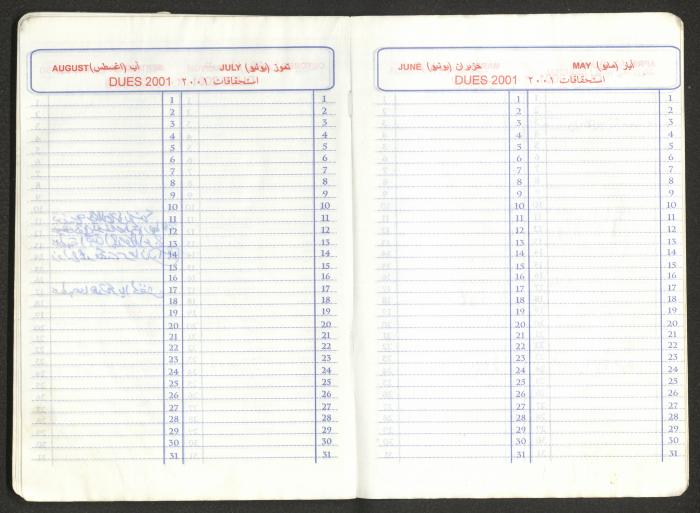 MAY أيار (مايو)
JUNE حزيران (يونيو)
DUES 2001 استحقاقات ٢٠٠١
1 1
2 2
3 3
4 4
5 5
6 6
7 7
8 8
9 9
10 10
11 11
12 12
13 13
14 14
15 15
16 16
17 17
18 18
19 19
20 20
21 21
22 22
23 23
24 24
25 25
26 26
27 27
28 28
29 29
30 30
31 31
JULY تموز (يوليو)
AUGUST آب (اغسطس)
DUES 2001 استحقاقات ٢٠٠١
1 1
2 2
3 3
4 4
5 5
6 6
7 7
8 8
9 9
10 10
11 11
12 12
13 13
14 14
15 15
16 16
17 17
18 18
19 19
20 20
21 21
22 22
23 23
24 24
25 25
26 26
27 27
28 28
29 29
30 30
31 31